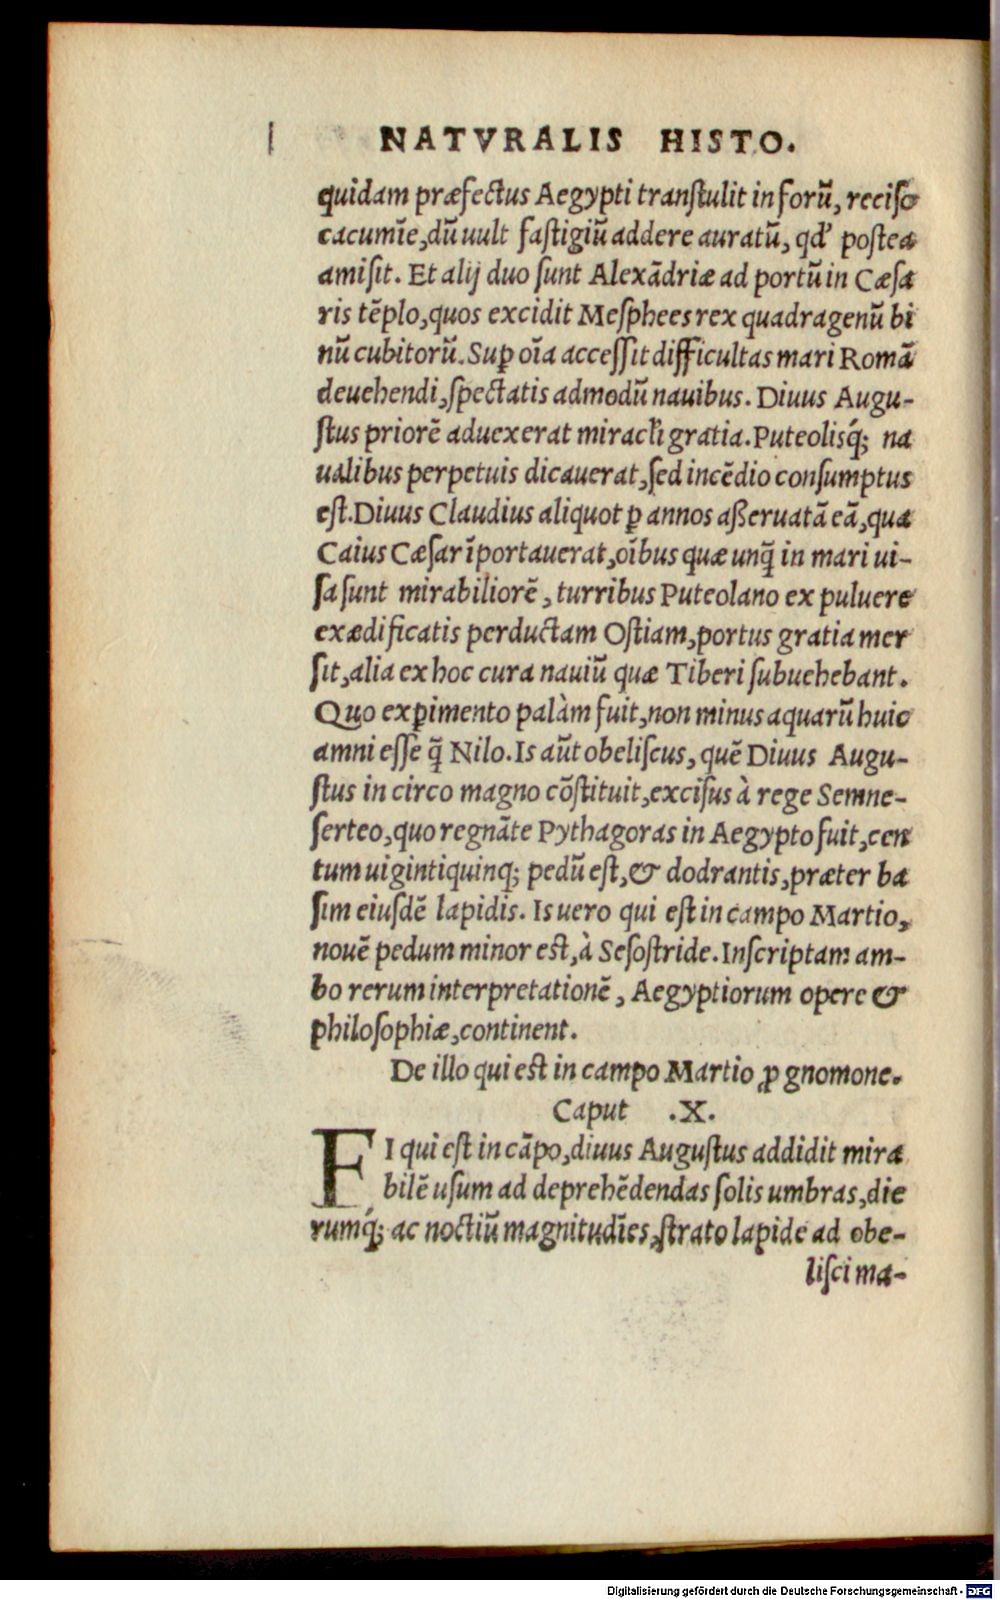 NATVRALIS HISTO.
quidam præfectus Aegypti tranſtulit in forũ, reciſo
cacumĩe, dũ uult faſtigiũ addere auratũ, qd' poſtea
amiſit. Et alij duo ſunt Alexãdriæ ad portũ in Cæſa
ris tẽplo, quos excidit Meſphees rex quadragenũ bi
nũ cubitorũ. Suꝑ oĩa acceſſit difficultas mari Romã
deuehendi, ſpectatis admodũ nauibus. Diuus Augu-
ſtus priorẽ aduexerat miracĺi gratia. Puteolisq́; na
ualibus perpetuis dicauerat, ſed incẽdio conſumptus
eſt. Diuus Claudius aliquot ꝑ annos aßeruatã eã, qua
Caius Cæſar ĩportauerat, oĩbus quæ unq̃ in mari ui-
ſa ſunt mirabiliorẽ, turribus Puteolano ex puluere
exædificatis perductam Oſtiam, portus gratia mer
ſit, alia ex hoc cura nauiũ quæ Tiberi ſubuehebant.
Quo exꝑimento palàm fuit, non minus aquarũ huic
amni eſſe q̃ Nilo. Is aũt obeliſcus, quẽ Diuus Augu-
ſtus in circo magno cõſtituit, exciſus à rege Semne-
ſerteo, quo regnãte Pythagoras in Aegypto fuit, cen
tum uigintiquinq; pedũ eſt, & dodrantis, præter ba
ſim eiuſdẽ lapidis. Is uero qui eſt in campo Martio,
nouẽ pedum minor eſt, à Seſoſtride. Inſcriptam am-
bo rerum interpretationẽ, Aegyptiorum opere &
philoſophiæ, continent.
De illo qui eſt in campo Martio ꝓ gnomone.
Caput .X.
EI qui eſt in cãpo, diuus Auguſtus addidit mira
bilẽ uſum ad deprehẽdendas ſolis umbras, die
rumq́; ac noctiũ magnitudĩes, ſtrato lapide ad obe-
liſci ma-
Digitalisierung gefördert durch die Deutsche Forschungsgemeinschaft - DFG